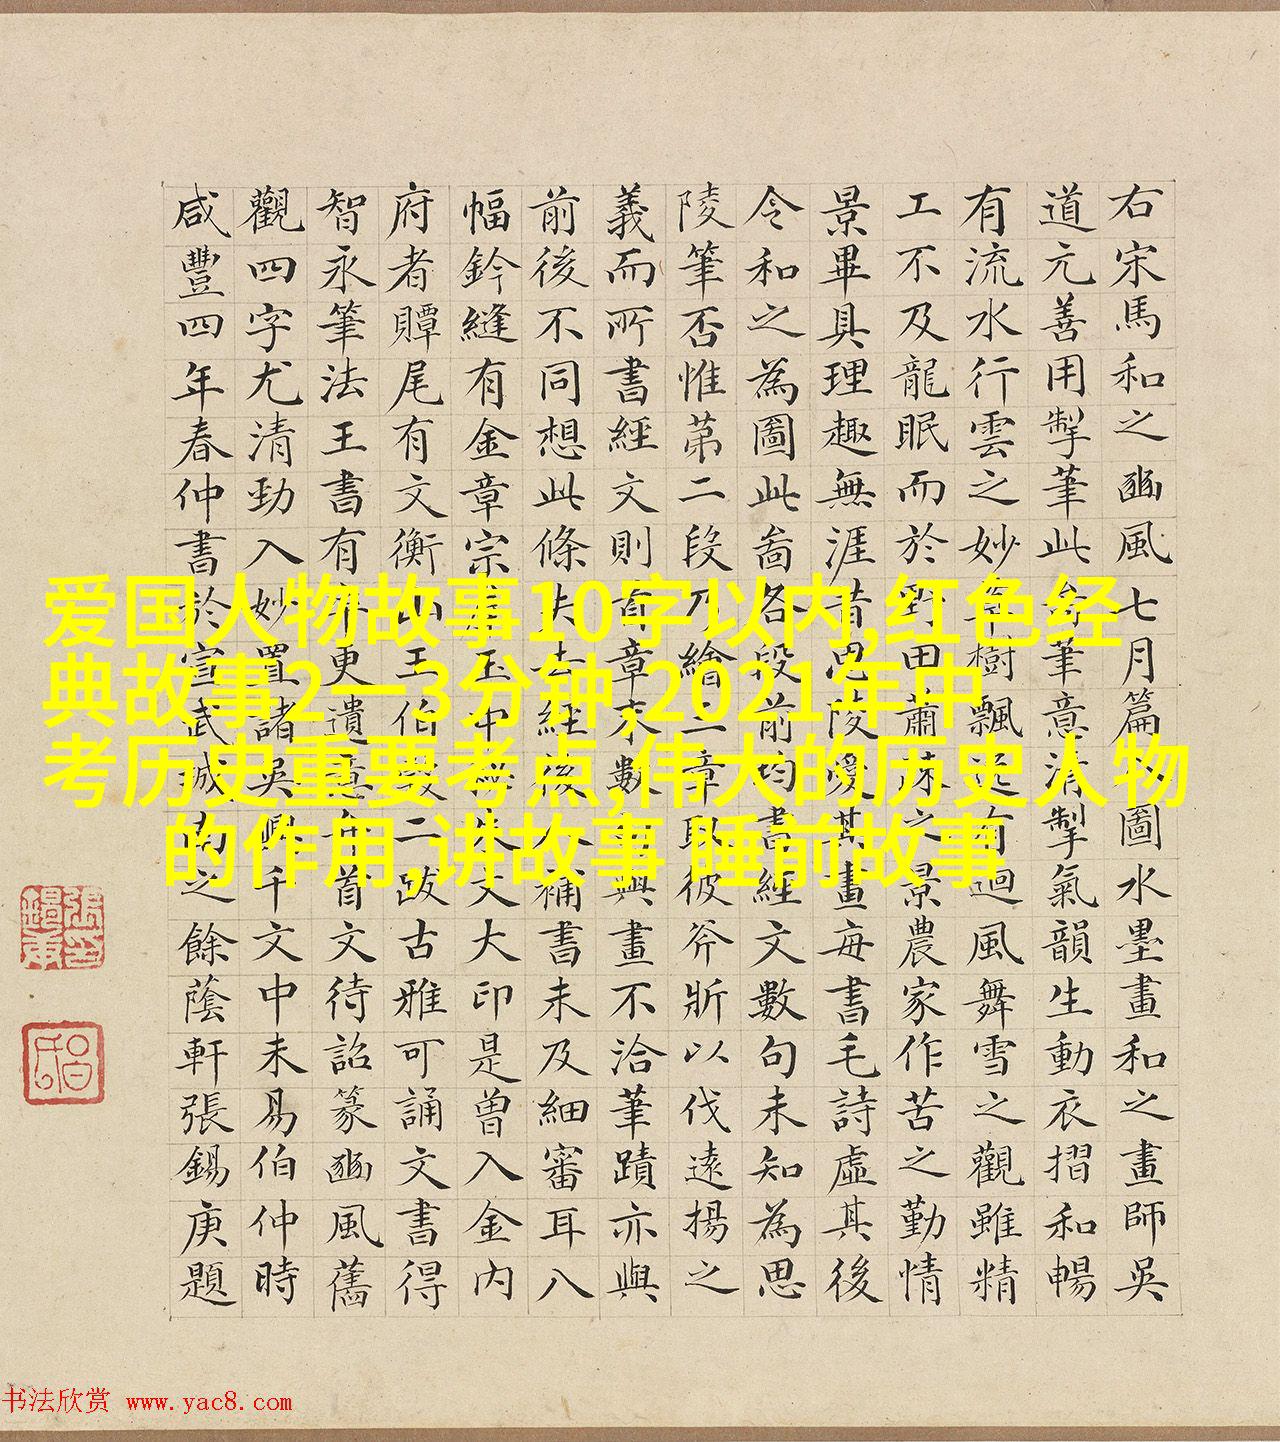 右宋馬和之豳風七月篇圖水墨畫和之畫師吳
道元善用掣筆此筆意清掣氣韻生動衣摺和暢
有流水行雲之妙樹飄有迴風舞雪之觀雖精
工不及龍眠而於田蕭之景農家作苦之勤情
景畢具理趣無涯昔思陵愛其畫每書毛詩虛其後
令和之為圖此啚各段前均書經文數句未知為思
陵筆否惟苐二段乃繪二章取彼斧斨以伐遠揚之
義而所書經文則首章末數與畫不洽筆蹟亦與
前後不同想此條失去經後人補書未及細審耳八
幅鈐縫有金章宗玉朱文大印是曾入金內
府者贉尾有文衡山王伯榖二跋古雅可誦文書得
智永筆法王書有更遺意卷首文待詔篆豳風舊
觀四字尤清勁入妙置諸吳興千文中未易伯仲時
咸豐四年春仲書於宣武城南之餘蔭軒張錫庚題
爱国人物故事10字以内,红色经
典故事2一3分钟,2021年中
考历史重要考点,伟大的历史人物
的作用,讲故事 睡前故事
书法欣赏 www.yac8.com